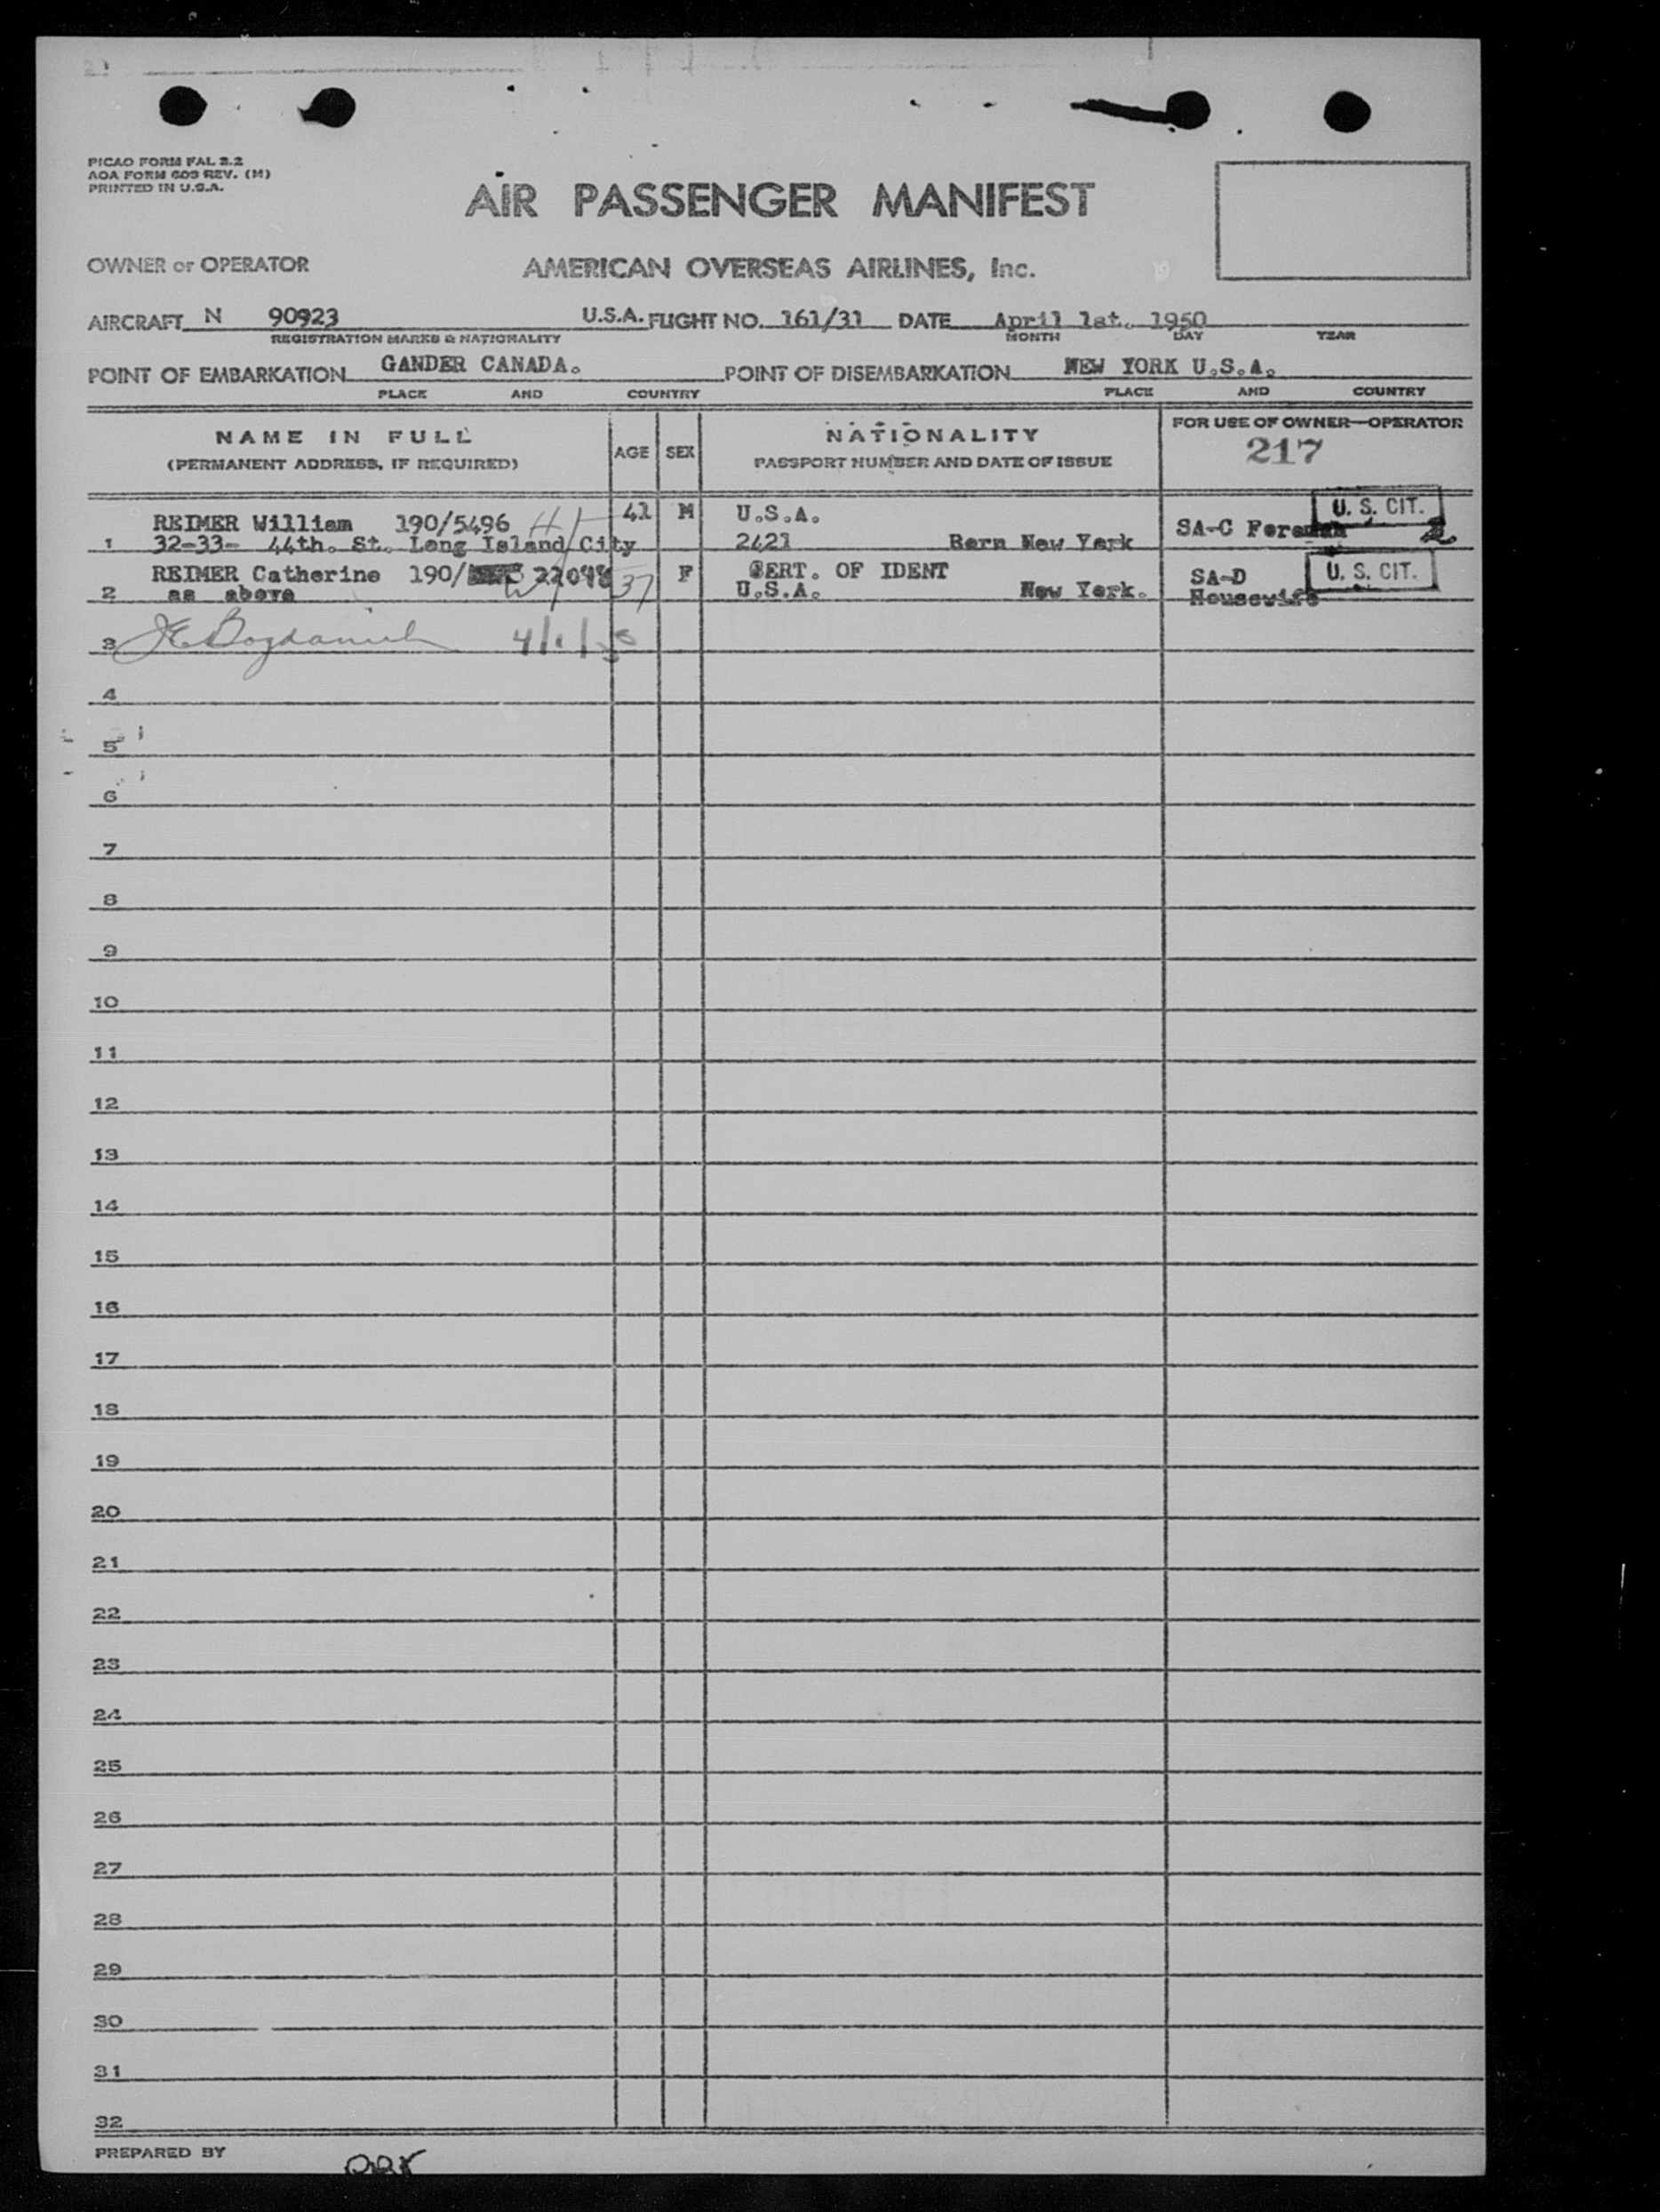 PICAO FORM FAL 2.2
AOA FORM 609 REV. (M)
PRINTED IN U.S.A.
AIR PASSENGER MANIFEST
OWNER or OPERATOR AMERICAN OVERSEAS AIRLINES, Inc.
AIRCRAFT N 90923 U.S.A. FLIGHT NO. 161/31 DATE April 1st. 1950
REGISTRATION MARKS & NATIONALITY MONTH DAY YEAR
POINT OF EMBARKATION GANDER CANADA. POINT OF DISEMBARKATION NEW YORK U.S.A.
PLACE AND COUNTRY PLACE AND COUNTRY
NAME IN FULL AGE SEX NATIONALITY FOR USE OF OWNER—OPERATOR
(PERMANENT ADDRESS, IF REQUIRED) PASSPORT NUMBER AND DATE OF ISSUE 217
REIMER William 190/5496 41 M U.S.A. SA-C Foreman U. S. CIT.
1 32-33- 44th. St. Long Island City 2421 Born New York
REIMER Catherine 190/ 22048 37 F CERT. OF IDENT SA-D U. S. CIT.
2 as above U.S.A. New York. Housewife
3 4/1/50
4
5
6
7
8
9
10
11
12
13
14
15
16
17
18
19
20
21
22
23
24
25
26
27
28
29
30
31
32
PREPARED BY